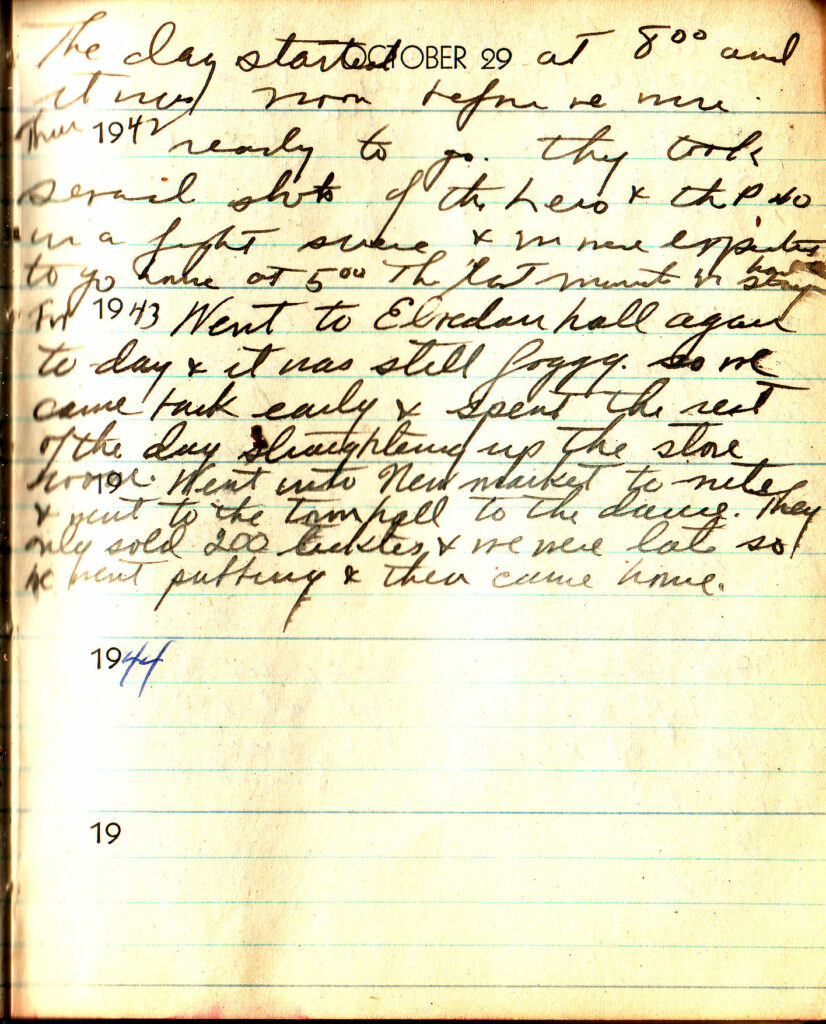 The day started OCTOBER 29 at 8 00 and
it was noon before we were
Thur 1942 ready to go. They took
several shots of the hero & the P 40
in a fight scene & we were expecting
to go home at 5 00 The last minute we had to stay
Fri 1943 Went to Elvedon hall again
to day & it was still foggy. so we
came back early & spent the rest
of the day straightening up the store
room. 19 Went into New market to nite
& went to the town hall to the dance. They
only sold 200 tickets & we were late so
we went pubbing & then came home.
1944
19